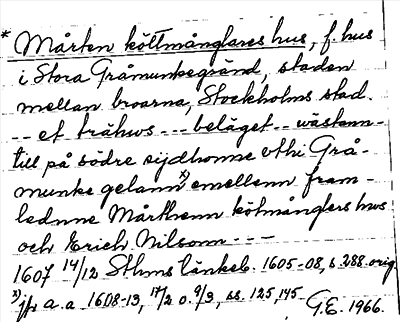 * Mårten köttmånglares hus, f. hus
i Stora Gråmunkegränd, staden
mellan broarna, Stockholms stad.
-- et trähws --- beläget -- wästann-
till på södre sijdhonne vthi Grå-
munke gelann x) emellenn fram-
lednne Mårthenn kötmånglers hws
och Erich Nilsonn ---
1607 14/12 Sthms tänkeb. 1605-08, s. 288 orig.
x) jfr a.a. 1608-13, 17/2 o. 9/3, ss. 125, 145
G.E. 1966.